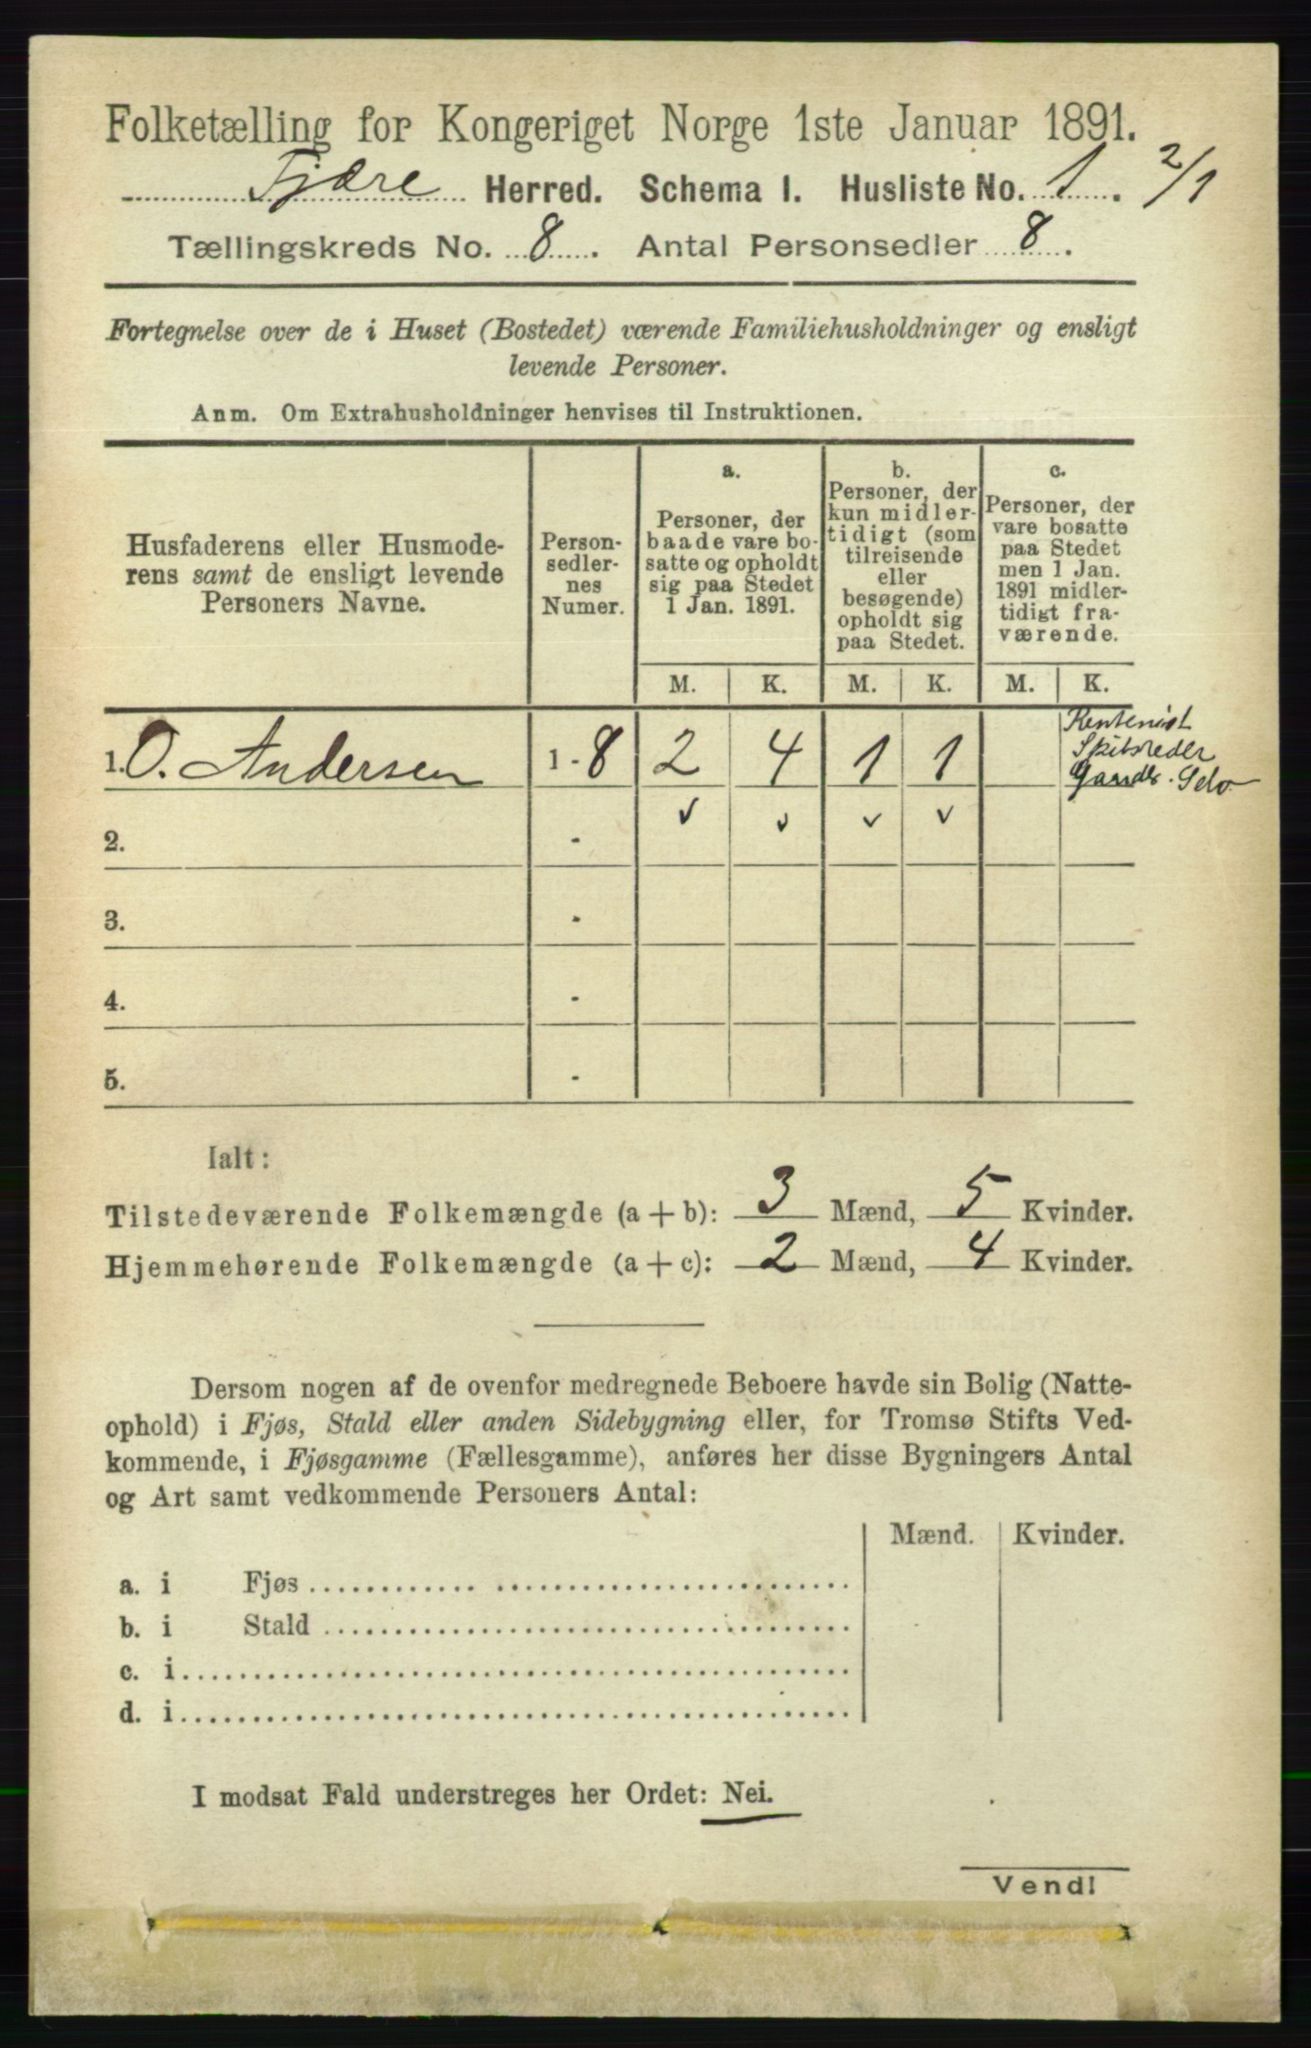 Folketælling for Kongeriget Norge 1ste Januar 1891.
Fjære Herred. Schema I. Husliste No. 1. 2/1
Tællingskreds No. 8. Antal Personsedler 8.
Fortegnelse over de i Huset (Bostedet) værende Familiehusholdninger og ensligt
levende Personer.
Anm. Om Extrahusholdninger henvises til Instruktionen.
Husfaderens eller Husmode-
rens samt de ensligt levende
Personers Navne.
Person-
sedler-
nes
Numer.
a.
Personer, der
baade vare bo-
satte og opholdt
sig paa Stedet
1 Jan. 1891.
b.
Personer, der
kun midler-
tidigt (som
tilreisende
eller
besøgende)
opholdt sig
paa Stedet.
c.
Personer, der
vare bosatte
paa Stedet
men 1 Jan.
1891 midler-
tidigt fra-
værende.
M. K. M. K. M. K.
1. O. Andersen 1 - 8 2 4 1 1
Rentenist
Skibsreder
✓ ✓ ✓ ✓
2. -
3. -
4. -
5. -
Ialt:
Tilstedeværende Folkemængde (a + b): 3 Mænd, 5 Kvinder.
Hjemmehørende Folkemængde (a + c): 2 Mænd, 4 Kvinder.
Dersom nogen af de ovenfor medregnede Beboere havde sin Bolig (Natte-
ophold) i Fjøs, Stald eller anden Sidebygning eller, for Tromsø Stifts Ved-
kommende, i Fjøsgamme (Fællesgamme), anføres her disse Bygningers Antal
og Art samt vedkommende Personers Antal:
Mænd. Kvinder.
a. i Fjøs
b. i Stald
c. i
d. i
I modsat Fald understreges her Ordet: Nei.
Vend!